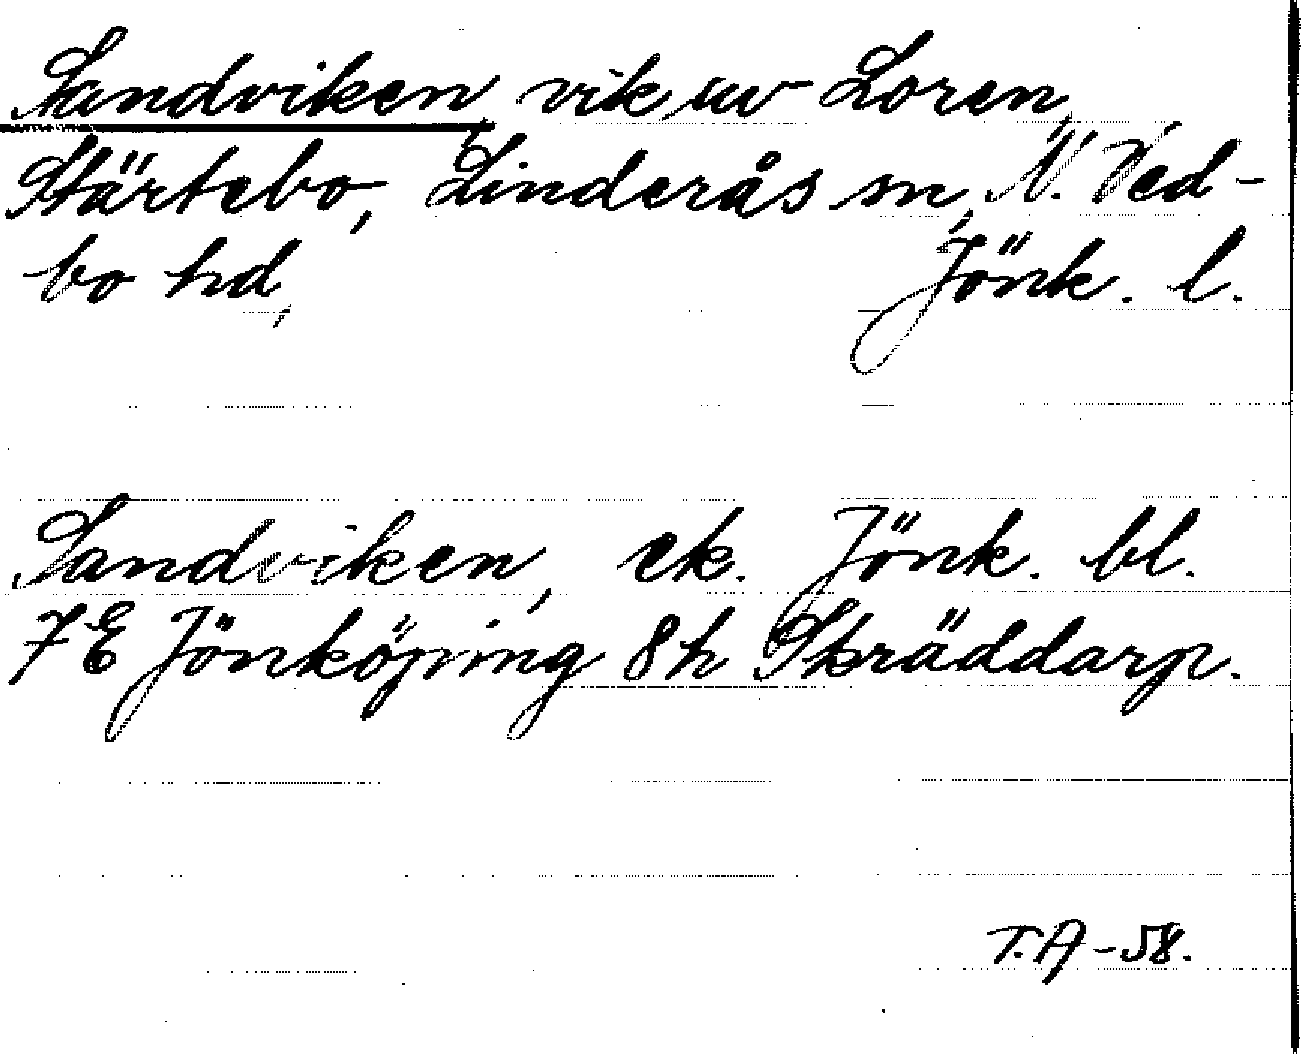 Sandviken, vik uv Loren,
Stärtebo, Linderås sn, N. Ved-
bo hd, Jönk. l.
Sandviken, ek. Jönk. bl.
7E Jönköping 8h Skräddarp.
T.A-58.